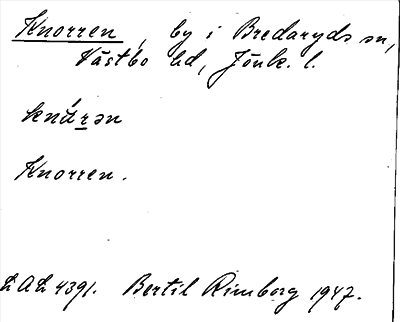 Knorren, by i Bredaryds sn,
Västbo hd, Jönk. l.
knúrən
Knorren.
LAL 4391. Bertil Rimborg 1947.